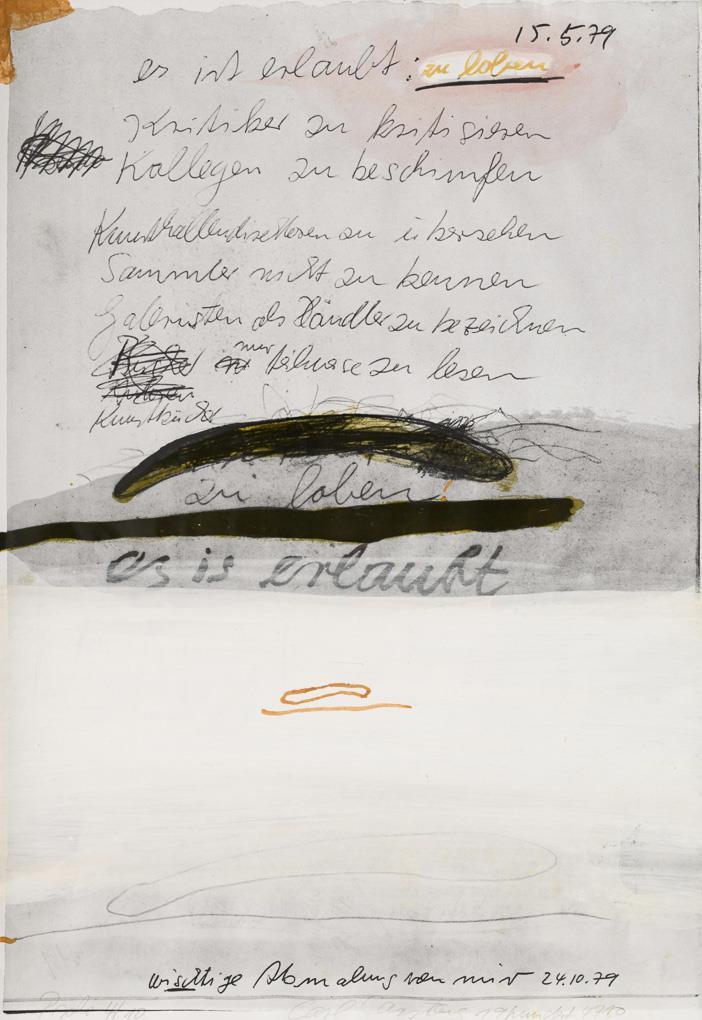 15.5.79
es ist erlaubt: zu loben
Kritiker zu kritisieren
Kollegen zu beschimpfen
Kunsthallendirektoren zu übersehen
Sammler nicht zu kennen
Galeristen als Händler zu bezeichnen
nur teilweise zu lesen
Kunstbücher
zu loben!
es is erlaubt
wichtige Abmalung von mir 24.10.79